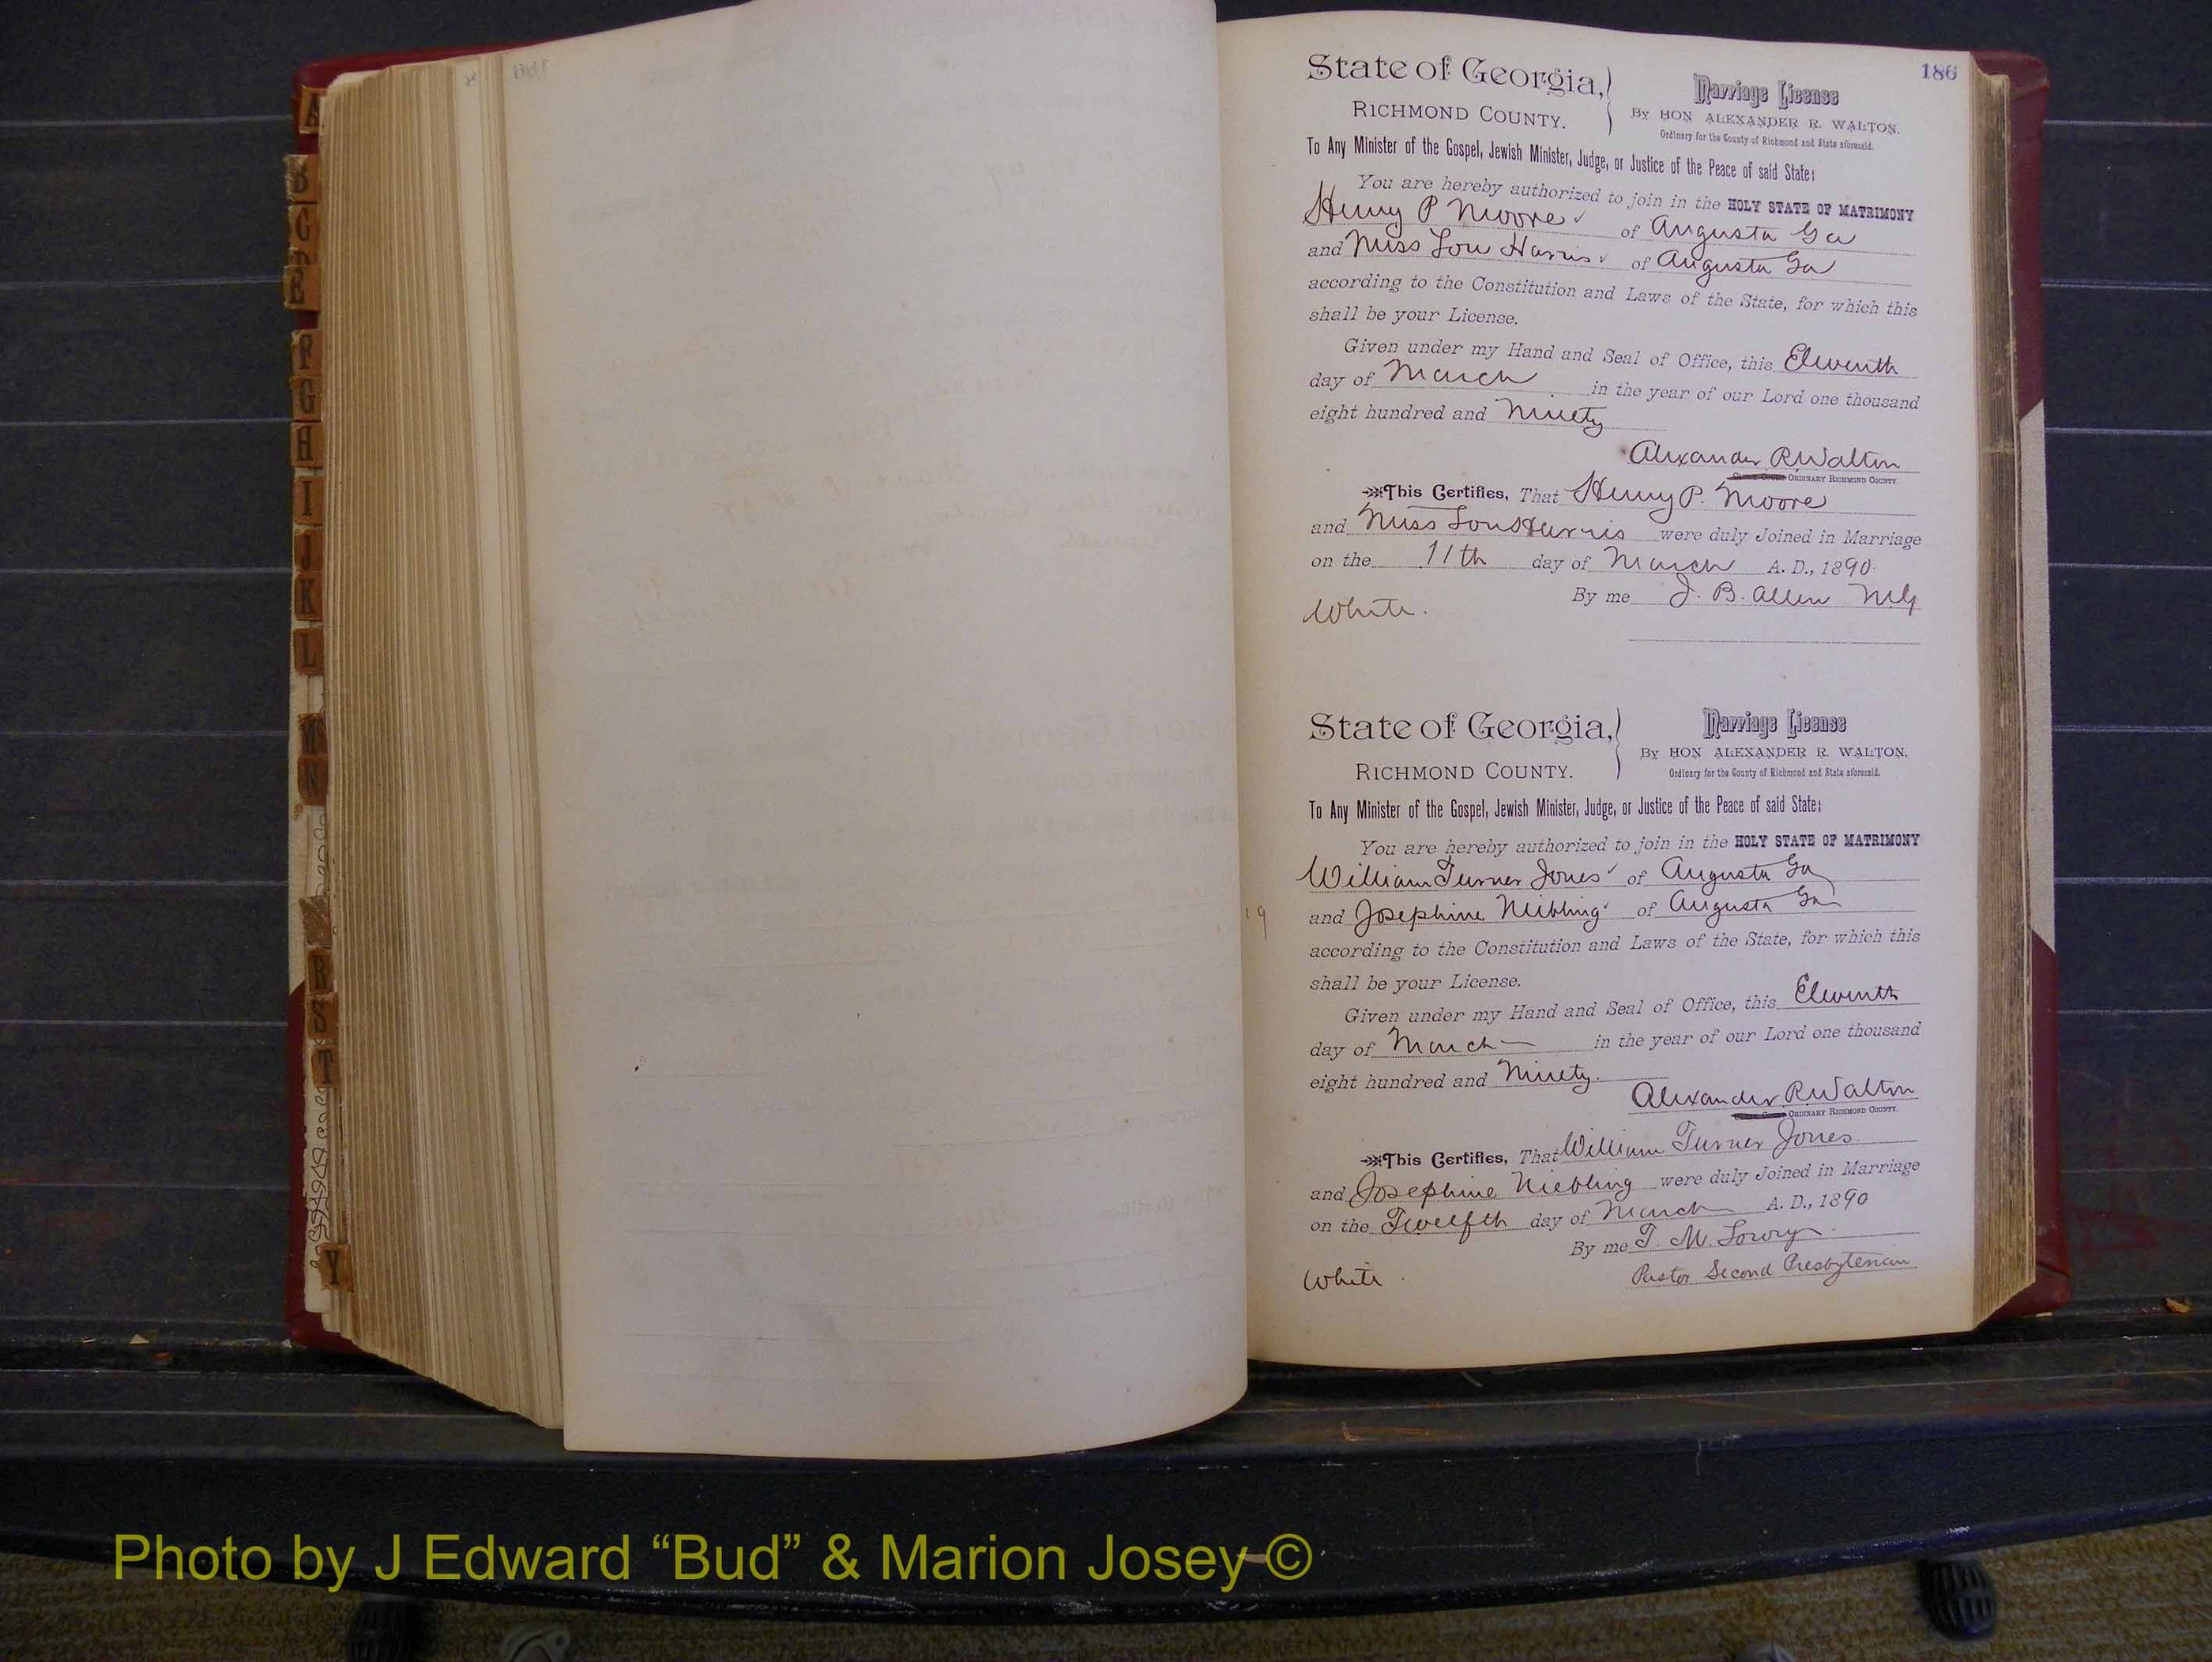 186
State of Georgia,
RICHMOND COUNTY.
Marriage License
By HON ALEXANDER R. WALTON.
Ordinary for the County of Richmond and State aforesaid.
To Any Minister of the Gospel, Jewish Minister, Judge, or Justice of the Peace of said State:
You are hereby authorized to join in the HOLY STATE OF MATRIMONY
Henry P Moore of Augusta Ga
and Miss Lou Harris of Augusta Ga
according to the Constitution and Laws of the State, for which this
shall be your License.
Given under my Hand and Seal of Office, this Eleventh
day of March in the year of our Lord one thousand
eight hundred and Ninety
Alexander R Walton
ORDINARY RICHMOND COUNTY.
This Certifies, That Henry P. Moore
and Miss Lou Harris were duly Joined in Marriage
on the 11th day of March A. D., 1890
By me J. B. Allen MG
White.
State of Georgia,
RICHMOND COUNTY.
Marriage License
By HON ALEXANDER R. WALTON.
Ordinary for the County of Richmond and State aforesaid.
To Any Minister of the Gospel, Jewish Minister, Judge, or Justice of the Peace of said State:
You are hereby authorized to join in the HOLY STATE OF MATRIMONY
William Turner Jones of Augusta Ga
19
and Josephine Niebling of Augusta Ga
according to the Constitution and Laws of the State, for which this
shall be your License.
Given under my Hand and Seal of Office, this Eleventh
day of March in the year of our Lord one thousand
eight hundred and Ninety.
Alexander R. Walton
ORDINARY RICHMOND COUNTY.
This Certifies, That William Turner Jones
and Josephine Niebling were duly Joined in Marriage
on the Twelfth day of March A. D., 1890
By me T. M. Lowry
Pastor Second Presbyterian
White.
A
B
C
D
E
F
G
H
I
J
K
L
M
N
R
S
T
Y
Photo by J Edward “Bud” & Marion Josey ©